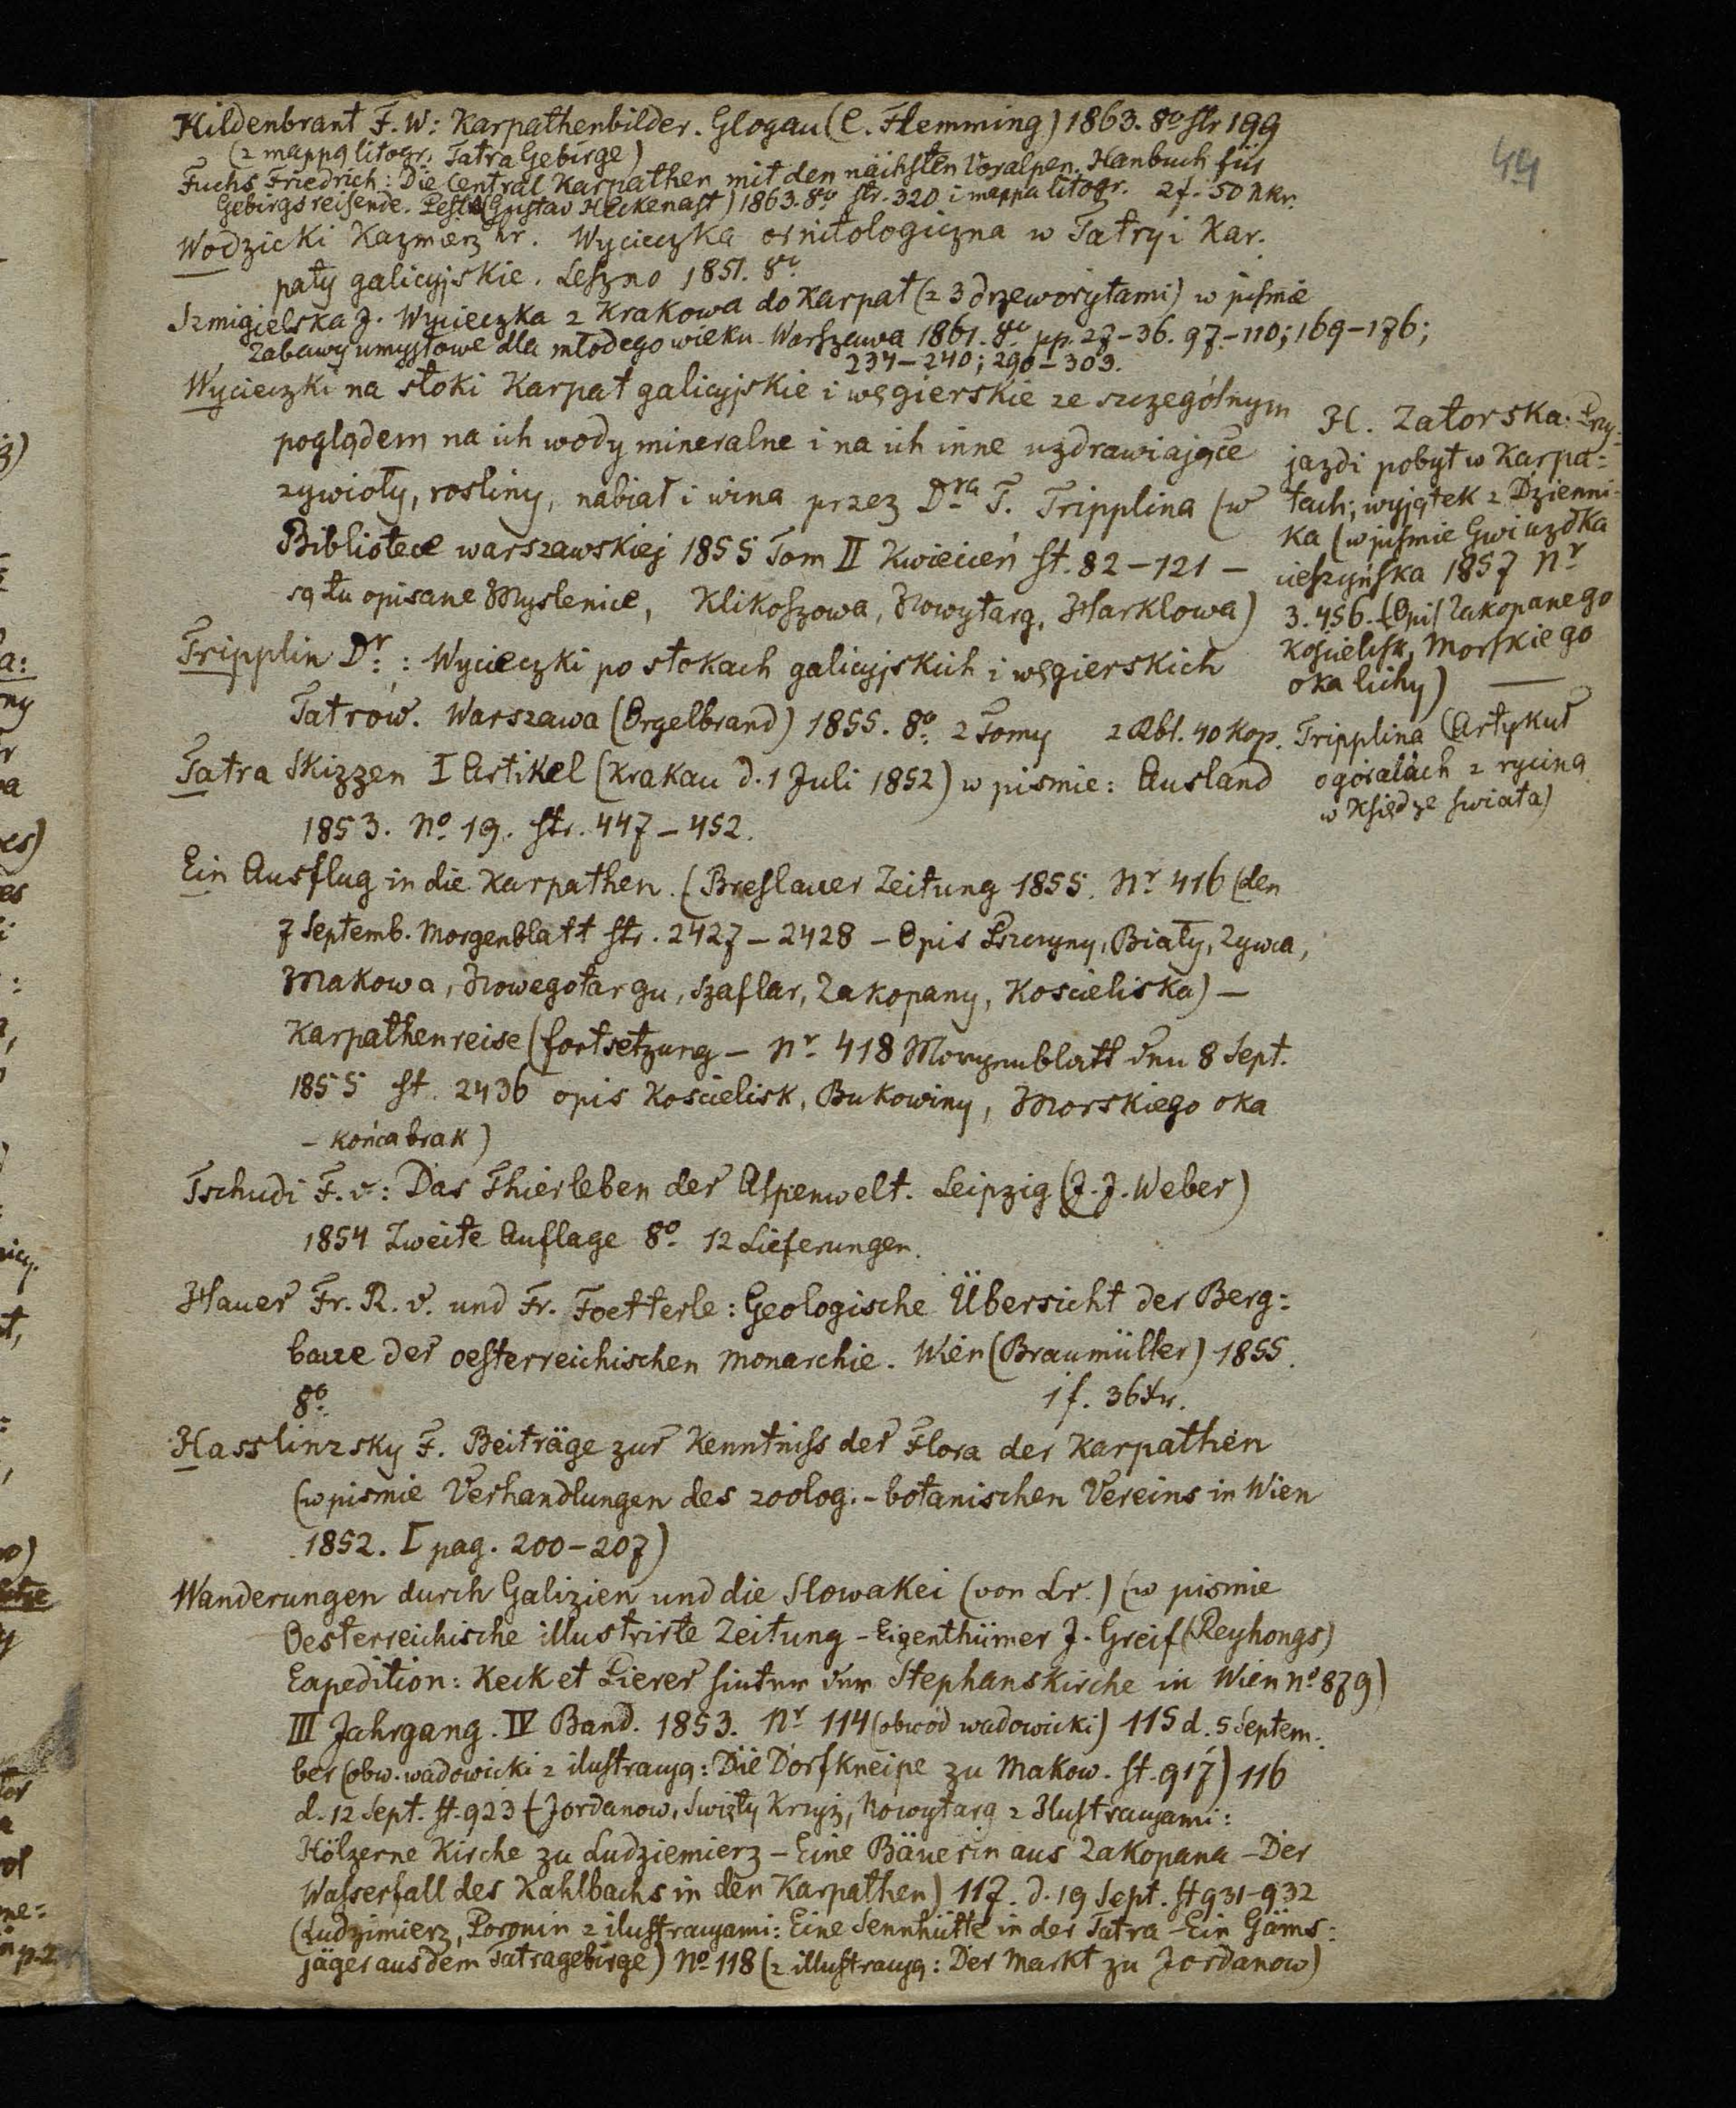 44
Hildenbrant F. W: Karpathenbilder. Glogau (C. Flemming) 1863. 8º str 199
(z mappą litogr. Tatra Gebirge)
Fuchs Friedrich: Die Central Karpathen mit den nächsten Voralpen. Hanbuch für
Gebirgsreisende. Pest (Gustav Heckenast) 1863. 8º str. 320 i mappa litogr. 2f. 50 nkr.
Wodzicki Kazmierz hr. Wycieczka ornitologiczna w Tatry i Kar.
paty galicyjskie. Leszno 1851. 8º
Szmigielska J. Wycieczka z Krakowa do Karpat (z 3 drzeworytami) w pismie
Zabawy umysłowe dla młodego wieku. Warszawa 1861. 8º pp. 27-36. 97-110; 169-176;
234-240; 290-303.
Wycieczki na stoki Karpat galicyjskie i węgierskie ze szczególnym
poglądem na ich wody mineralne i na ich inne uzdrawiające
zywioły, rosliny, nabiał i wina przez Dra T. Tripplina (w
Bibliotece warszawskiej 1855 Tom II Kwiecień st. 82-121 -
są tu opisane Myslenice, Klikoszowa, Nowytarg, Harklowa)
Tripplin Dr: : Wycieczki po stokach galicyjskich i węgierskich
Tatrów. Warszawa (Orgelbrand) 1855. 8º 2 Tomy 2 Rbl. 40 kop.
Tatra Skizzen I Artikel (Krakau d. 1 Juli 1852) w pismie: Ausland
1853. Nº 19. str. 447-452.
H. Zatorska: Przy=
jazd i pobyt w Karpa=
tach; wyjątek z Dzienni=
ka (w pismie Gwiazdka
cieszyńska 1857 Nr
3. 456. (Opis Zakopanego
Koscielisk, Morskiego
oka lichy) —
Tripplina (Artykuł
o góralach z ryciną
w Księdze świata)
Ein Ausflug in die Karpathen. (Breslauer Zeitung 1855. Nr 416 (den
7 Septemb. Morgenblatt str. 2427-2428 - Opis Pszczyny, Biały, Zywca,
Makowa, Nowegotargu, Szaflar, Zakopany, Koscieliska) -
Karpathenreise (fortsetzung - Nr 418 Morgenblatt den 8 Sept.
1855 st. 2436 opis Koscielisk, Bukowiny, Morskiego oka
- końca brak)
Tschudi F. v: Das Thierleben der Alpenwelt. Leipzig (J. J. Weber)
1854 Zweite Auflage 8º 12 Lieferungen.
Hauer Fr. R. v. und Fr. Foetterle: Geologische Übersicht der Berg=
baue der oesterreichischen Monarchie. Wien (Braumüller) 1855.
8º 1 f. 36 Xr.
Hasslinzsky F. Beiträge zur Kenntniss der Flora der Karpathen
(w pismie Verhandlungen des zoolog.-botanischen Vereins in Wien
1852. I pag. 200-207)
Wanderungen durch Galizien und die Slowakei (von Lr.) (w pismie
Oesterreichische illustrirte Zeitung - Eigenthümer J. Greif (Reyhongs)
Expedition: Keck et Pierer hinter der Stephanskirche in Wien Nº 879)
III Jahrgang. IV Band. 1853. Nr 114 (obwód wadowicki) 115 d. 5 Septem.
ber (obw. wadowicki z ilustracyą: Die Dorfkneipe zu Makow. st. 917) 116
d. 12 Sept. st. 923 (Jordanow, Swięty Krzyż, Nowytarg z Ilustracyami:
Hölzerne Kirche zu Ludziemierz - Eine Bäuerin aus Zakopana - Der
Wasserfall des Kahlbachs in den Karpathen) 117. d. 19 Sept. st 931-932
(Ludzimierz, Poronin z ilustracyami: Eine Sennhütte in der Tatra - Ein Gäms=
jäger aus dem Tatragebirge) Nº 118 (z illustracyą: Der Markt zu Jordanow)